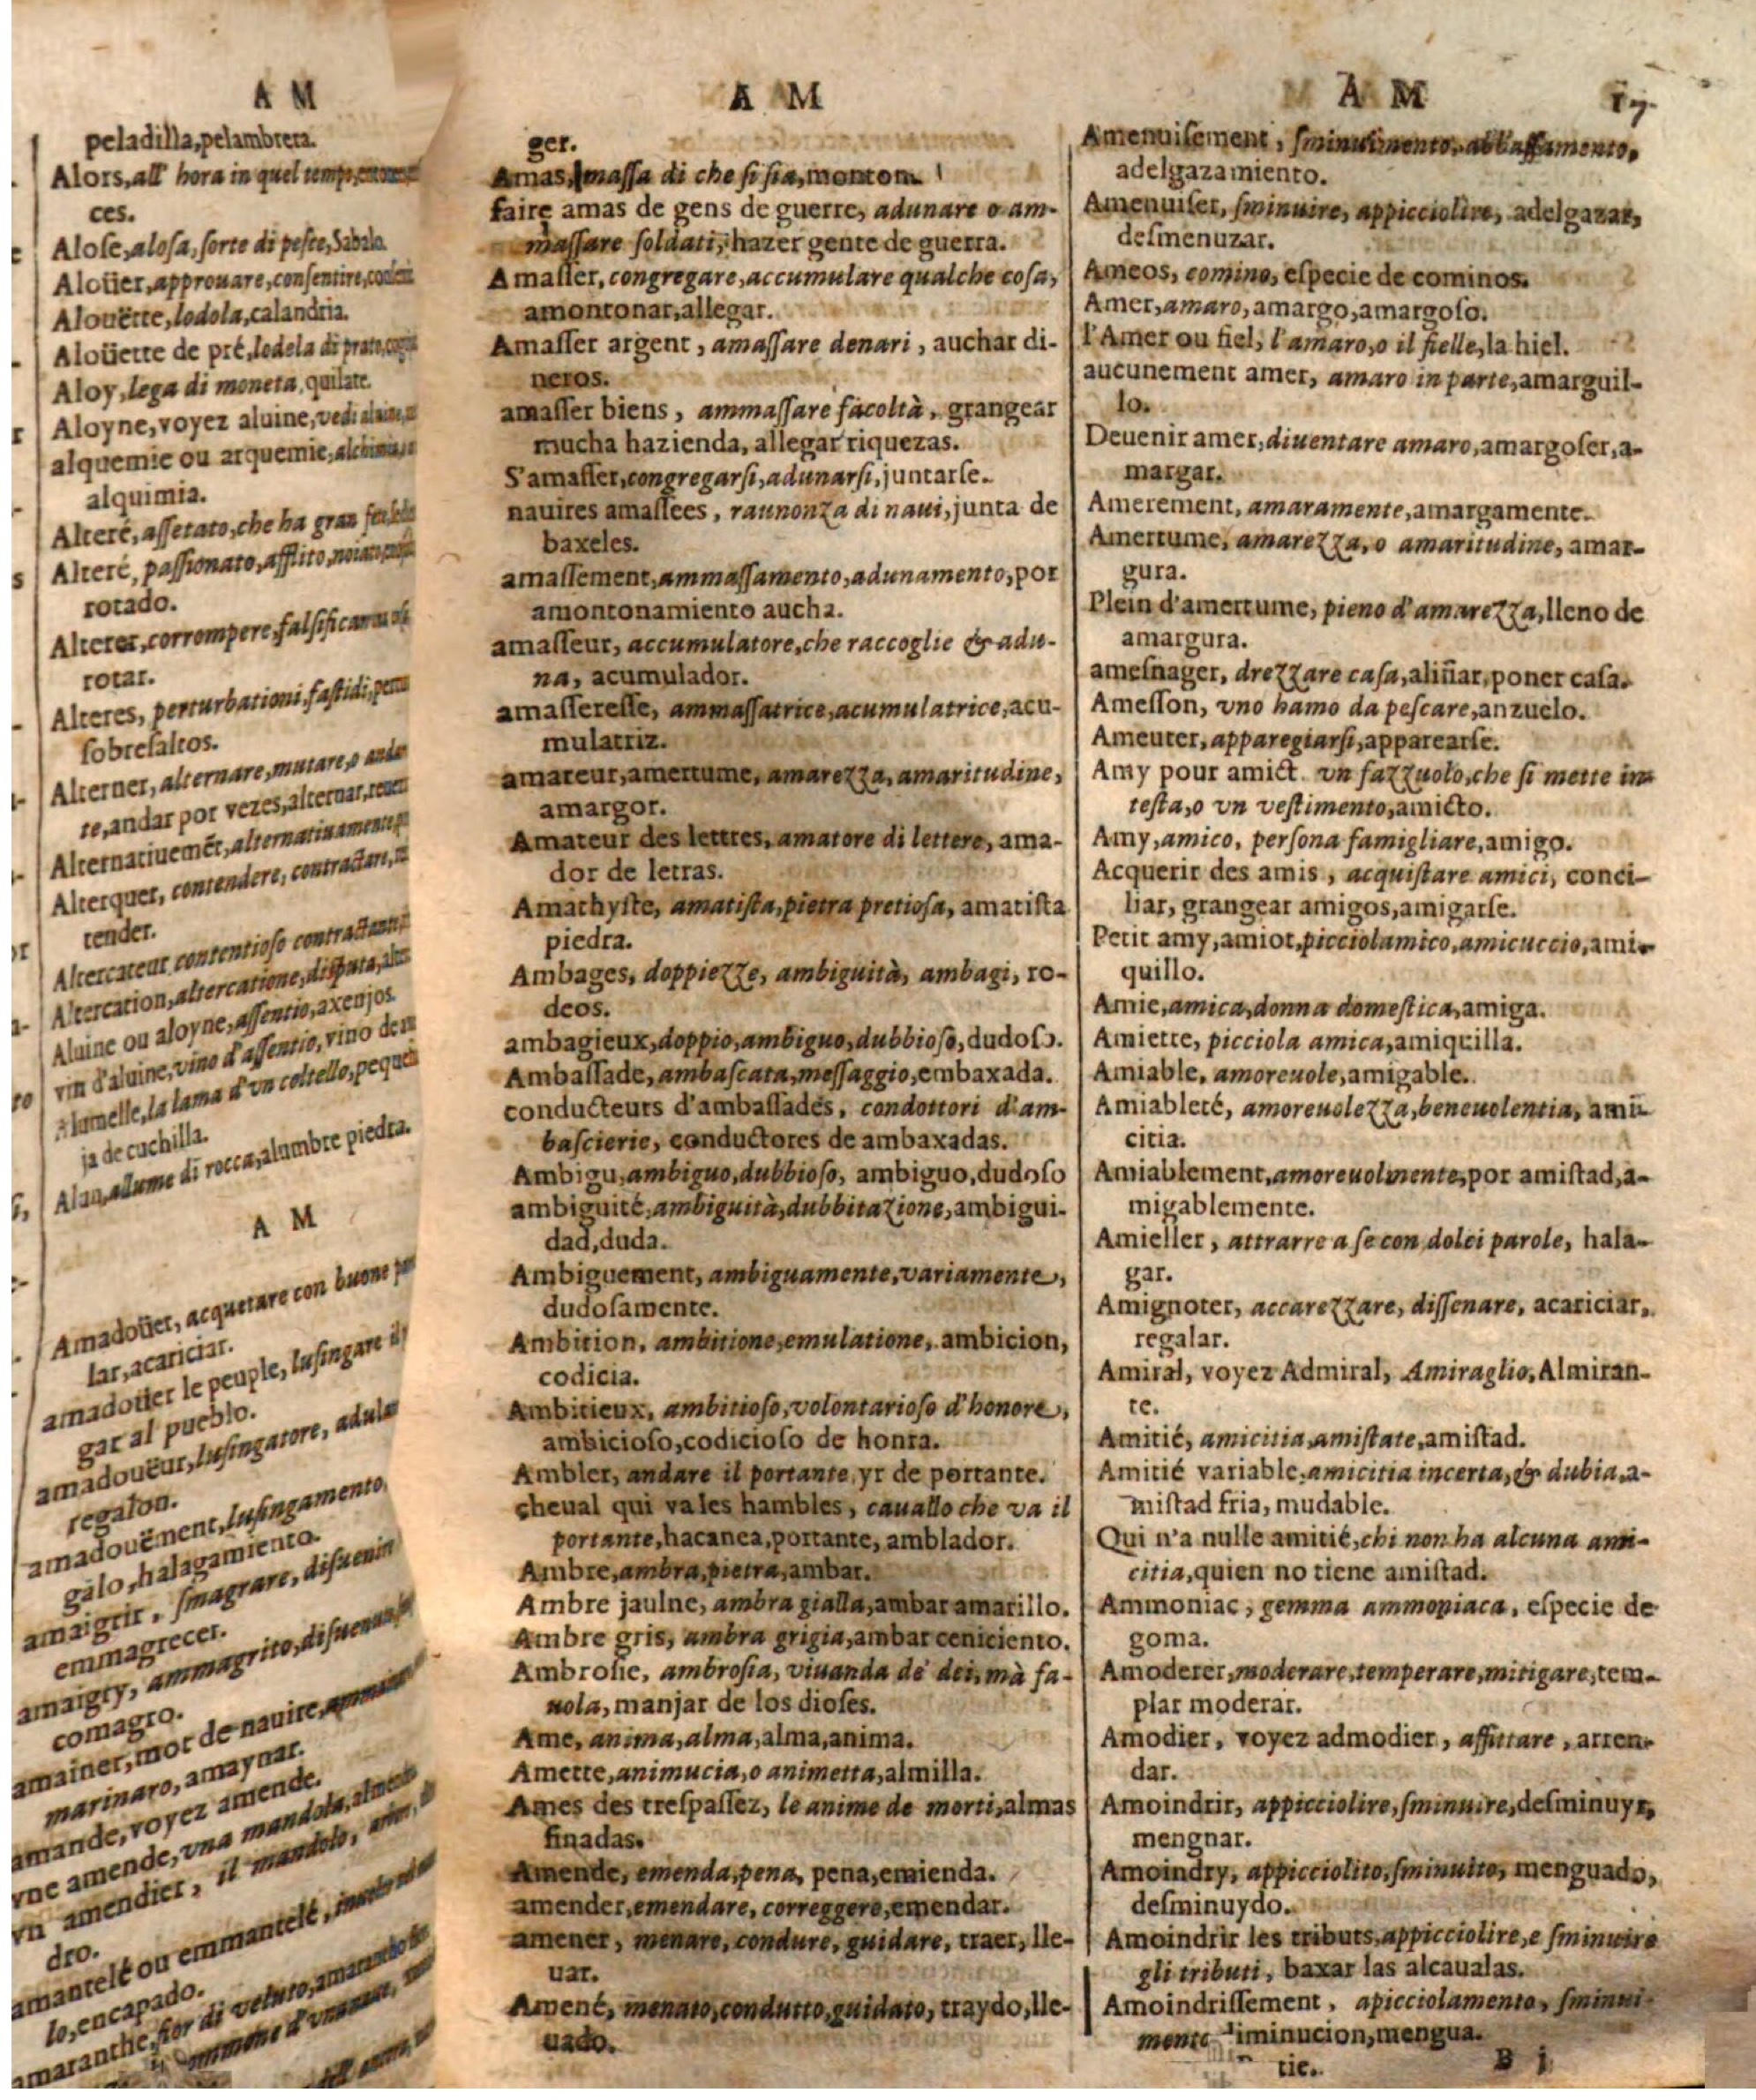 A M
peladilla,pelambrera.
Alors,all' hora in quel tempo,
ces.
Aloſe,aloſa,ſorte di peſce,Sabalo.
Aloüer,approuare,conſentire,
Alouëtte,lodola,calandria.
Aloüette de pré,lodola di prato,
Aloy,lega di moneta,quilate.
Aloyne,voyez aluine,vedi
alquemie ou arquemie,
alquimia.
Alteré,aſſetato,che ha gran
Alteré, paſſionato,afflito,
rotado.
Alterer,corrompere,falſificar
rotar.
Alteres, perturbationi,faſtidi,
ſobreſaltos.
Alterner, alternare,mutare,o
te,andar por vezes,alternar,
Alternatiuemẽt,alternatiuamente
Alterquer, contendere, contraſtare,
tender.
Altercateur contentioſo
Altercation,altercatione,diſputa,
Aluine ou aloyne,aſſentio,axenjos.
vin d'aluine,vino d'aſſentio,vino de
Alumelle,la lama d'vn coltello,
ja de cuchilla.
Alun,alume di rocca,alumbre piedra.
A M
Amadoüer, acquetare con buone
lar,acariciar.
amadoüer le peuple, luſingare il
gar al pueblo.
amadouëur,luſingatore,
regalon.
amadouëment,luſingamento,
galo,halagamiento.
amaigrir, ſmagrare,
emmagrecer.
amaigry, ammagrito,
comagro.
amainer,mot de nauire,
marinaro, amaynar.
amande,voyez amende.
vne amende,vna mandola,
vn amendier, il mandolo,
dro.
amantelé ou emmantelé,
lo,encapado.
amaranthe,fior di veluto,
A M
ger.
Amas,maſſa di che ſi ſia,monton.
faire amas de gens de guerre, adunare o am-
maſſare ſoldati, hazer gente de guerra.
Amaſſer, congregare,accumulare qualche coſa,
amontonar,allegar.
Amaſſer argent, amaſſare denari, auchar di-
neros.
amaſſer biens, ammaſſare facoltà, grangear
mucha hazienda, allegar riquezas.
S'amaſſer,congregarſi,adunarſi,juntarſe.
nauires amaſſees, raunonza di naui,junta de
baxeles.
amaſſement,ammaſſamento,adunamento,por
amontonamiento aucha.
amaſſeur, accumulatore,che raccoglie & adu-
na, acumulador.
amaſſereſſe, ammaſſatrice,acumulatrice,acu-
mulatriz.
amareur,amertume, amarezza, amaritudine,
amargor.
Amateur des lettres, amatore di lettere, ama-
dor de letras.
Amathyſte, amatiſta,pietra pretioſa, amatiſta
piedra.
Ambages, doppiezze, ambiguità, ambagi, ro-
deos.
ambagieux,doppio,ambiguo,dubbioſo,dudoſo.
Ambaſſade,ambaſcata,meſſaggio,embaxada.
conducteurs d'ambaſſades, condottori d'am-
baſcierie, conductores de ambaxadas.
Ambigu,ambiguo,dubbioſo, ambiguo,dudoſo
ambiguité,ambiguità,dubbitazione,ambigui-
dad,duda.
Ambiguement, ambiguamente,variamente,
dudoſamente.
Ambition, ambitione,emulatione, ambicion,
codicia.
Ambitieux, ambitioſo,volontarioſo d'honore,
ambicioſo,codicioſo de honra.
Ambler, andare il portante,yr de portante.
cheual qui va les hambles, cauallo che va il
portante,hacanea,portante, amblador.
Ambre,ambra,pietra,ambar.
Ambre jaulne, ambra gialla,ambar amarillo.
Ambre gris, ambra grigia,ambar ceniciento.
Ambroſie, ambroſia, viuanda de dei,mà fa-
uola, manjar de los dioſes.
Ame, anima,alma,alma,anima.
Amette,animucia,o animetta,almilla.
Ames des treſpaſſez, le anime de morti,almas
finadas.
Amende, emenda,pena, pena,emienda.
amender,emendare, correggere,emendar.
amener, menare, condure, guidare, traer, lle-
uar.
Amené, menato,condutto,guidato, traydo,lle-
uado.
A M 17
Amenuiſement, ſminuimento, abbaſſamento,
adelgazamiento.
Amenuiſer, ſminuire, appicciolire, adelgazar,
deſmenuzar.
Ameos, comino, eſpecie de cominos.
Amer,amaro,amargo,amargoſo.
l'Amer ou fiel, l'amaro,o il fielle,la hiel.
aucunement amer, amaro in parte,amarguil-
lo.
Deuenir amer,diuentare amaro,amargoſer,a-
margar.
Amerement, amaramente,amargamente.
Amertume, amarezza, o amaritudine, amar-
gura.
Plein d'amertume, pieno d'amarezza,lleno de
amargura.
ameſnager, drezzare caſa,aliñar,poner caſa.
Ameſſon, vno hamo da peſcare,anzuelo.
Ameuter,apparegiarſi,apparearſe.
Amy pour amict. vn fazzuolo,che ſi mette in
teſta,o vn veſtimento,amicto.
Amy,amico, perſona famigliare,amigo.
Acquerir des amis, acquiſtare amici, conci-
liar, grangear amigos,amigarſe.
Petit amy,amiot,picciolamico,amicuccio,ami-
quillo.
Amie,amica,donna domeſtica,amiga.
Amiette, picciola amica,amiquilla.
Amiable, amoreuole,amigable.
Amiableté, amoreuolezza,beneuolentia, ami-
citia.
Amiablement,amoreuolmente,por amiſtad,a-
migablemente.
Amieller, attrarre a ſe con dolci parole, hala-
gar.
Amignoter, accarezzare, diſſenare, acariciar,
regalar.
Amiral, voyez Admiral, Amiraglio,Almiran-
te.
Amitié, amicitia,amiſtate,amiſtad.
Amitié variable,amicitia incerta,& dubia,a-
miſtad fria, mudable.
Qui n'a nulle amitié,chi non ha alcuna ami-
citia,quien no tiene amiſtad.
Ammoniac, gemma ammoniaca, eſpecie de
goma.
Amoderer,moderare,temperare,mitigare,tem-
plar moderar.
Amodier, voyez admodier, affittare, arren-
dar.
Amoindrir, appicciolire,ſminuire,deſminuyr,
mengnar.
Amoindry, appicciolito,ſminuito, menguado,
deſminuydo.
Amoindrir les tributs,appicciolire,e ſminuire
gli tributi, baxar las alcaualas.
Amoindriſſement, apicciolamento, ſminui-
mento iminucion,mengua.
B j tie.